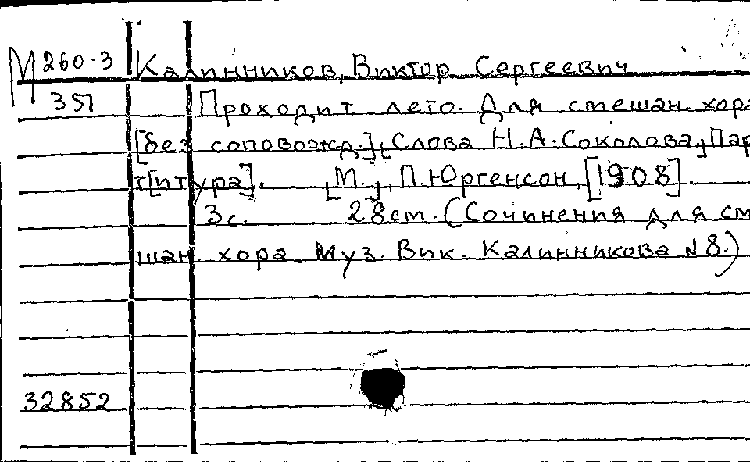 М 260-3 Калинников, Виктор Сергеевич
351 Проходит лето. Для смешан. хора
[без соповожд.], Слова Н.А. Соколова, Пар
т[итура]. [М.], П. Юргенсон, [1908].
3с. 28см. (Сочинения для сме
шан. хора Муз. Вик. Калинникова №8.)
32852